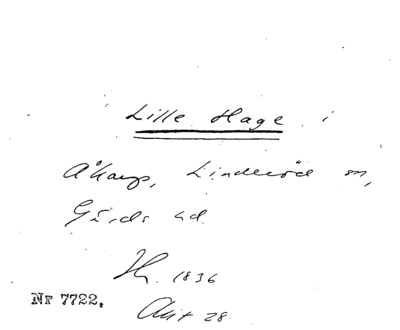 Lille Hage i
Åkarp, Linderöd sn,
Gärds hd.
Hr. 1836
Nr 7722.
Akt 28.